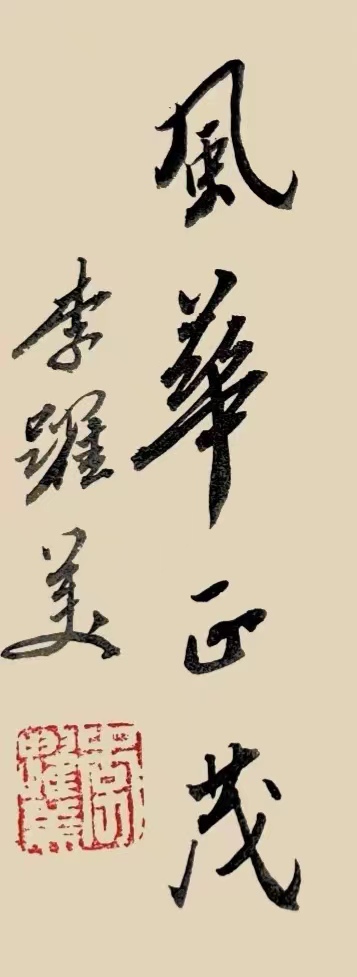 風華正茂
李躍美